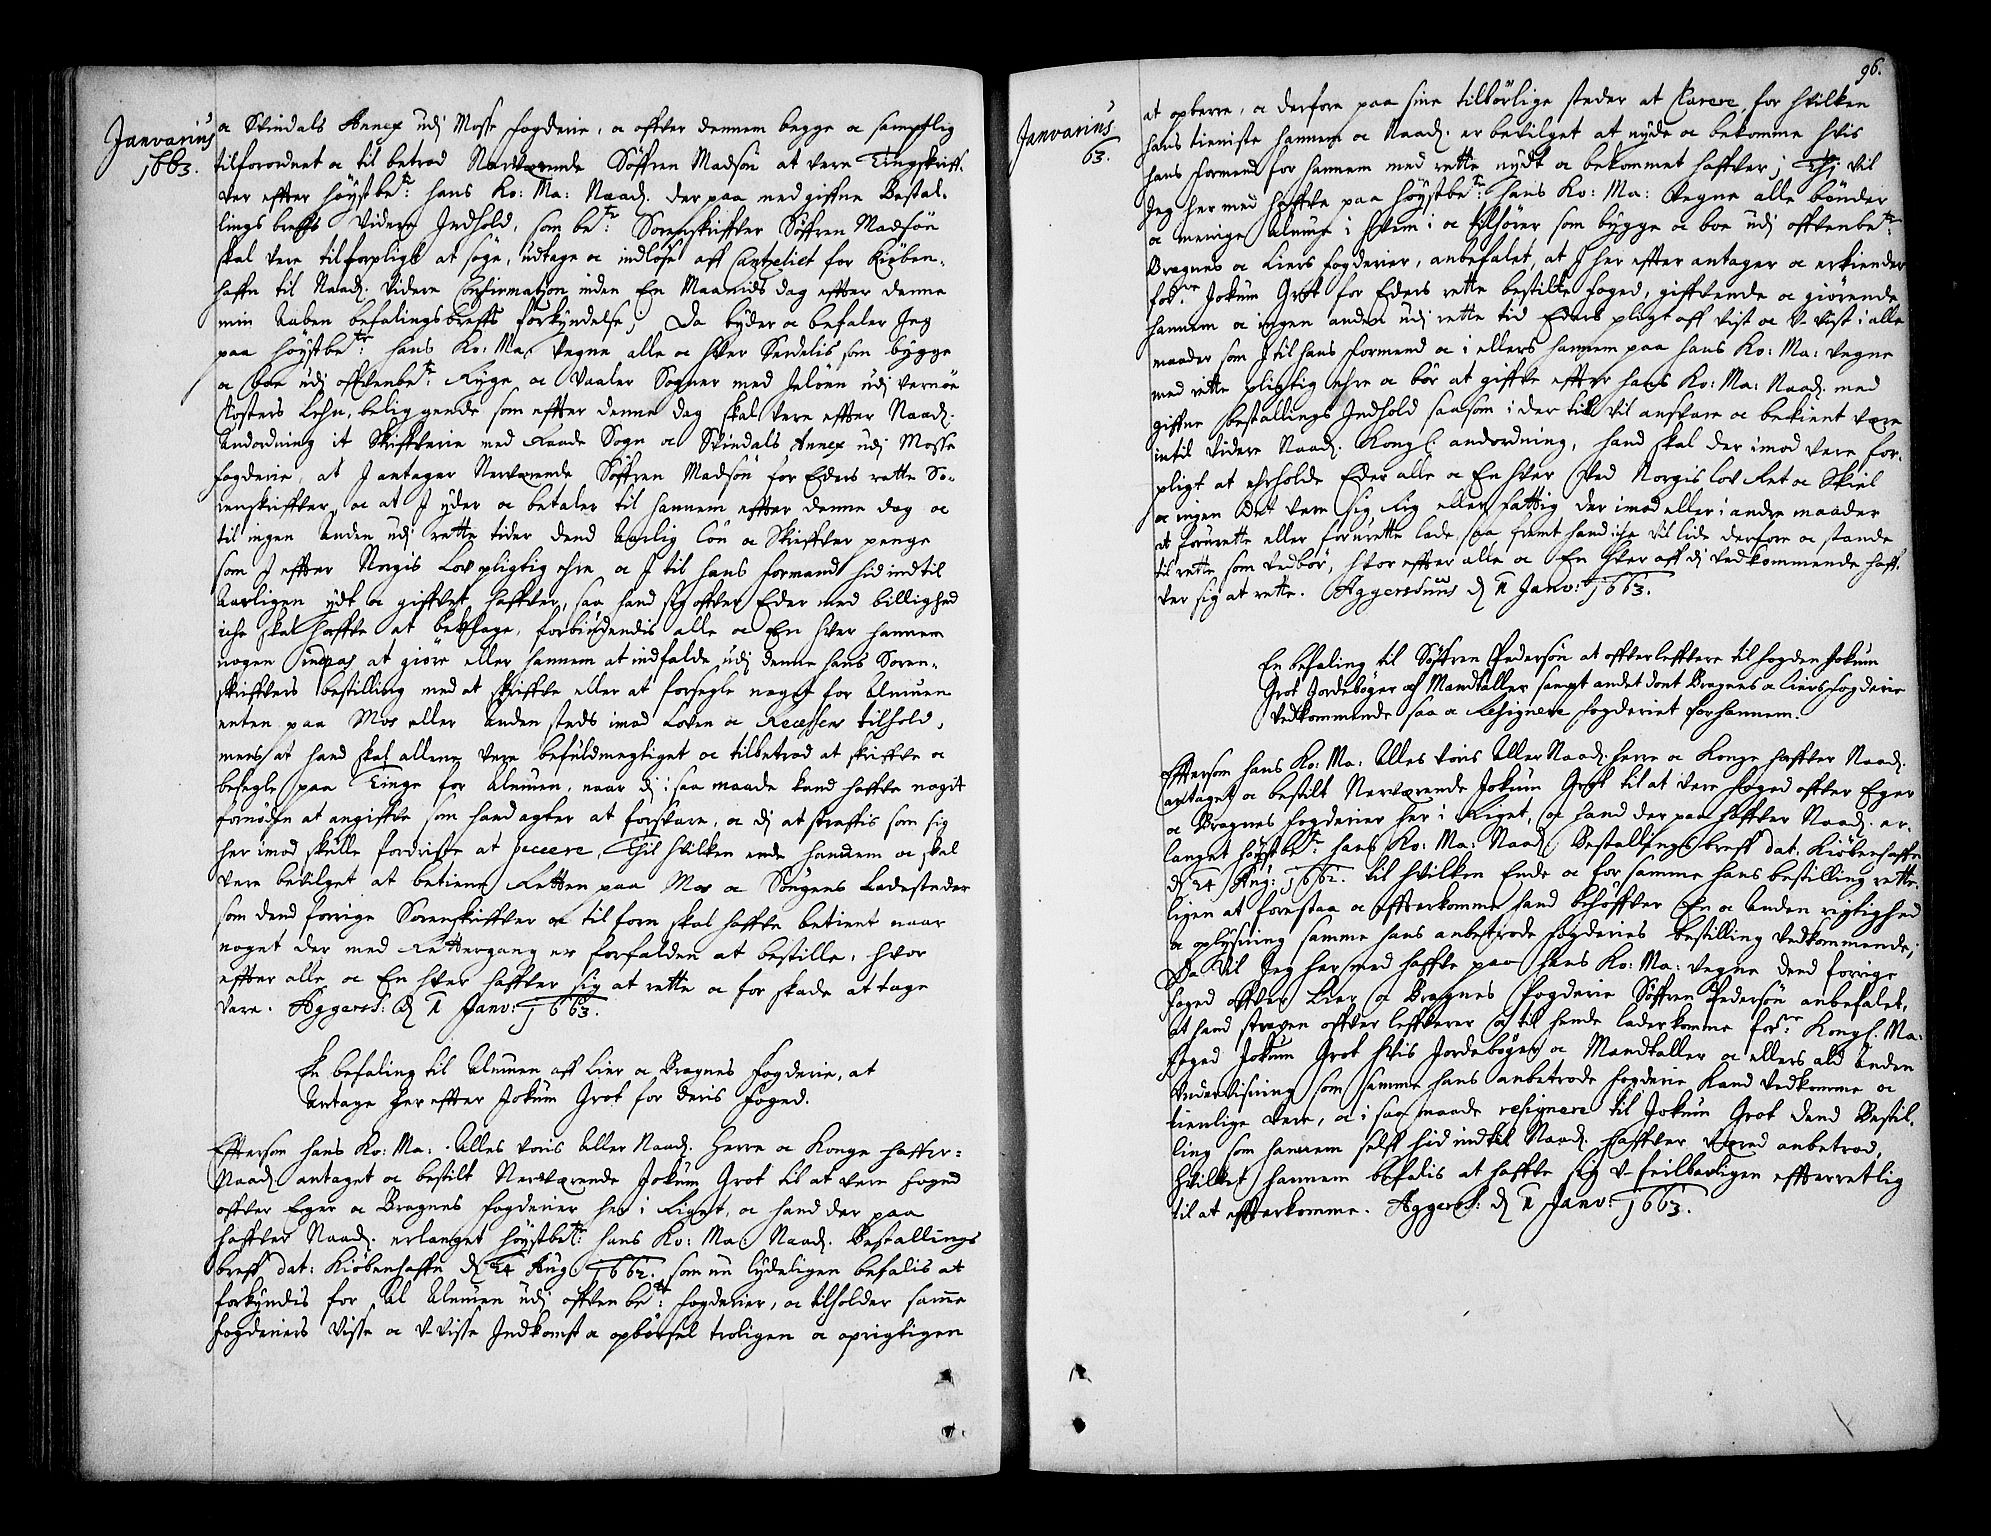 Janvarius
1663.
a Svindals Annex udj Mosse fogderie, a offver dennem begge a samptlig
tilforordnet a til betrod Nerværende Söffren Madsön at vere Tingskriff-
ver effter höystbe.te hans Ko: Ma: Naad. der paa med giffne Bestal-
lings breffs videre Indhold, som be.te Sorenskriffver Söffren Madsön
skal vere tilforpligt at söge, udtage a indlöse aff Cantzeliet for Kiöben-
haffn til Naad. videre Confirmation inden En Maanids dag effter denne
min Aaben befalingsbreffs forkyndelse, Da byder a befaler Jeg
paa höystbe.te hans Ko: Ma: vegne alle a hver serdelis som bygge
a boe udj offvenbe.te Rygge a Vaaler Sogner med Jelöen udj Vernöe
Klosters Lehn, beliggende som effter denne dag skal vere effter Naad.
Andordning it Skriffverie med Raade Sogn a Svindals Annex udj Mosse
fogderie, at J antager Nerværende Söffren Madsön for Eders rette So-
renskriffver, a at J yder a betaler til hannem effter denne dag a
til ingen anden udj rette tider dend Aarlig Lön a Skriffver penge
som J effter Norgis Lov pligtig ehre a J til hans formand hid ind til
Aarligen ydt a giffvet haffver, saa hand sig offver Eder med billighed
iche skal haffve at beklage, forbiudendis alle a En hver hannem
nogen indpas at giöre eller hannem at indfalde udj denne hans Soren-
skriffvers bestilling med at skriffve eller at forsegle noget for Almuen
enten paa Mos eller anden steds imod Loven a Recessens tilhold,
mens at hand skal allene vere befuldmegtiget a tilbetrod at skriffve a
besegle paa Tinge for Almuen, naar dj i saa maade kand haffve nogit
fornöden at angiffve som hand agter at forsvare, a dj at straffis som sig
her imod skulle fordriste at peccere, Till hvilken ende hannem a skal
vere bevilget at betiene Retten paa Mos a Songens Ladesteder
som dend forrige Sorenskriffver a til forn skal haffve betient naar
noget der med Rettergang er forfalden at bestille, hvor
effter alle a En hver haffver sig at rette a for skade at tage
vare. Aggersh: d. 2 Janv: 1663.
En befaling til Almuen aff Lier a Bragnes fogderie, at
antage her effter Jokum Grot for deris foged.
Efftersom hans Ko: Ma: Alles voris Aller Naad. Herre a Konge haffver
Naad. antaget a bestilt Nerværende Jokum Grot til at vere foged
offver Eger a Bragnes fogderier her i Riget, a hand der paa
haffver Naad. erlanget höystbe.te hans Ko: Ma: Naad. Bestallings
breff dat: Kiöbenhaffn d. 24 Aug: 1662. som nu lydeligen befalis at
forkyndis for Al Almuen udj offvenbe.te fogderier, a tilholder samme
fogderiers visse a u-visse Indkomst a opbörsel troligen a oprigtigen
96.
Janvarius
63.
at opberre, a derfore paa sine tilbörlige steder at klarere, for hvilken
hans tieniste hannem a Naad. er bevilget at nyde a bekomme hvis
hans formend for hannem med rette nydt a bekommet haffver; Thj vil
Jeg her med haffve paa höystbe.te hans Ko: Ma: vegne alle bönder
a menige Almue i hvem i a tilhörer som bygge a boe udj offvenbe.te
Bragnes a Liers fogderier, anbefalet, at J her effter antager a erkiender
for.ne Jokum Grot for Eders rette bestilte foged, giffvende a giörende
hannem a ingen anden udj rette tid Eders pligt aff vist a U-vist i alle
maader som J til hans formend a i ellers hannem paa hans Ko: Ma: vegne
med rette pligtig ehre a bör at giffve effter hans Ko: Ma: Naad. med
giffne bestallings Indhold saasom i der till vil ansvare a bekient være
intil videre Naad. Kongl. andordning, hand skal der imod vere for-
pligt at ehrholde Eder alle a En hver ved Norgis lov Ret a Skiel
a ingen det vere sig Rig eller fattig der imod eller i andre maader
at forurette eller forurette lade, saa fremt hand iche vil lide derfore a stande
til rette som vedbör, hvor effter alle a En hver aff dj vedkommende haff-
ver sig at rette. Aggershuus d. 2 Janv: 1663.
En befaling til Söffren Pedersön at offverleffvere til fogden Jokum
Grot Jordeböger a Mandtaller sampt andet dont Bragnes a Liers fogderie
vedkommende saa a Resignere fogderiet for hannem.
Efftersom hans Ko: Ma: Alles voris Aller Naad. herre a Konge haffver Naad.
antaget a bestilt Nerværende Jokum Grot til at vere foged offver Eger
a Bragnes fogderier her i Riget, a hand der paa haffver Naad. er-
langet höystbe.te hans Ko: Ma: Naad. Bestallings breff dat: Kiöbenhaffn
d. 24 Aug: 1662. til hvilken Ende a for samme hans bestilling rette-
ligen at forestaa a effterkomme hand behöffver En a anden rigtighed
a oplysning samme hans anbetrode fogderies bestilling vedkommende;
Da vil Jeg her med haffve paa hans Ko: Ma: vegne dend forrige
foged offver Lier a Bragnes fogderie Söffren Pedersön anbefalet,
at hand straxen offver leffverer a til hende lader komme for.ne Kongl. Ma:
foged Jokum Grot hvis Jordeböger a Mandtaller a ellers ald anden
undervisning som samme hans anbetrode fogderie kand vedkomme a
tienlige vere, a i saa maade resignere til Jokum Grot dend Bestil-
ling som hannem self hid indtil Naad. haffver vered anbetrod,
hvilket hannem befalis at haffve sig u-feilbarligen effterretlig
til at effterkomme. Aggersh: d. 2 Janv: 1663.